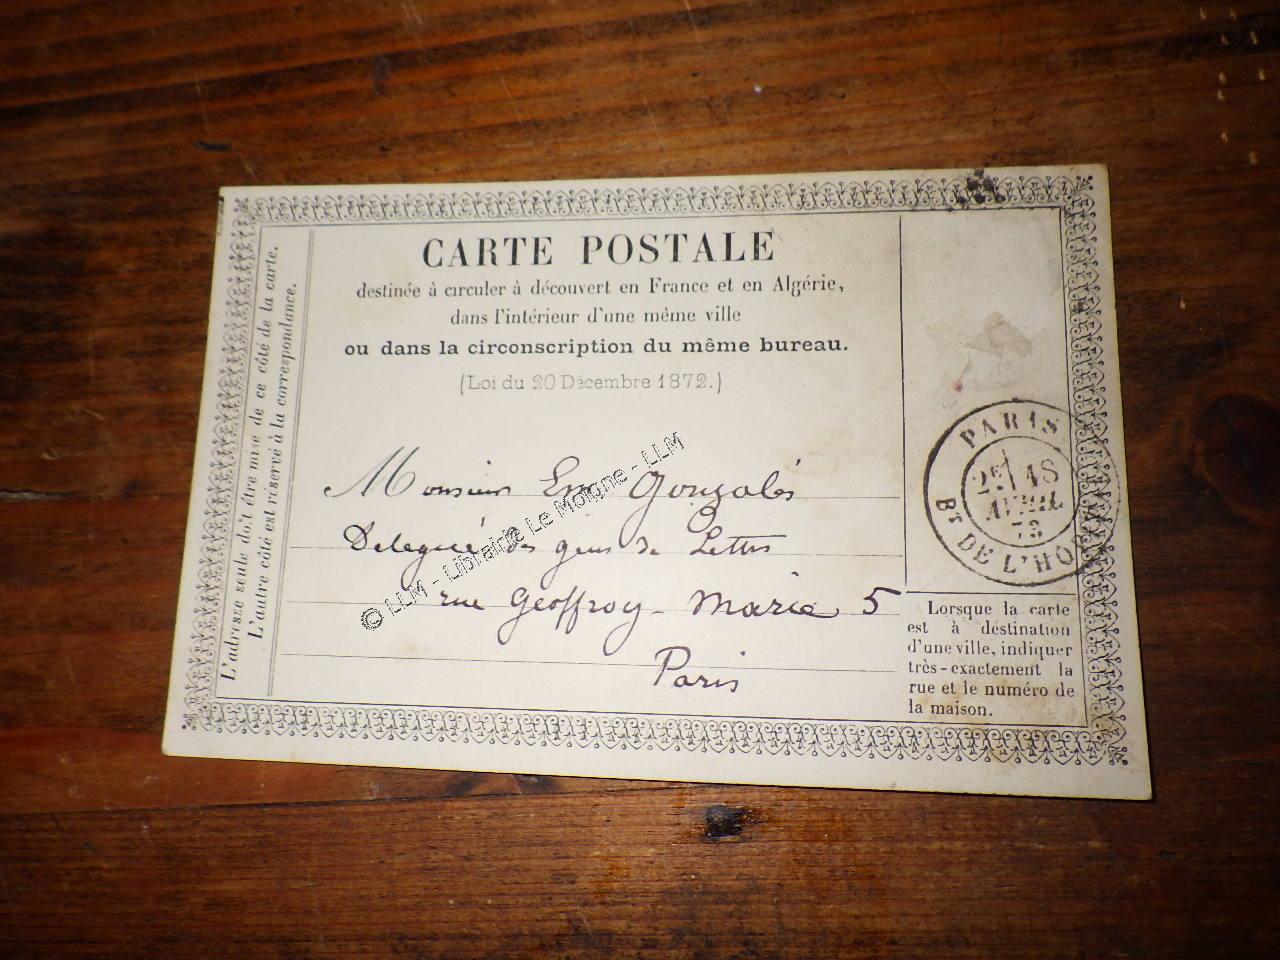 CARTE POSTALE
destinée à circuler à découvert en France et en Algérie,
dans l'intérieur d'une même ville
ou dans la circonscription du même bureau.
(Loi du 20 Décembre 1872.)
L'adresse seule doit être mise de ce côté de la carte.
L'autre côté est réservé à la correspondance.
Monsieur Em Gonzalès
Délégué des gens de Lettres
rue Geoffroy-Marie 5
Paris
PARIS
2E 18
AVRIL
73
Bt DE L'HÔ
Lorsque la carte
est à destination
d'une ville, indiquer
très-exactement la
rue et le numéro de
la maison.
© LLM - Librairie Le Moigne - LLM